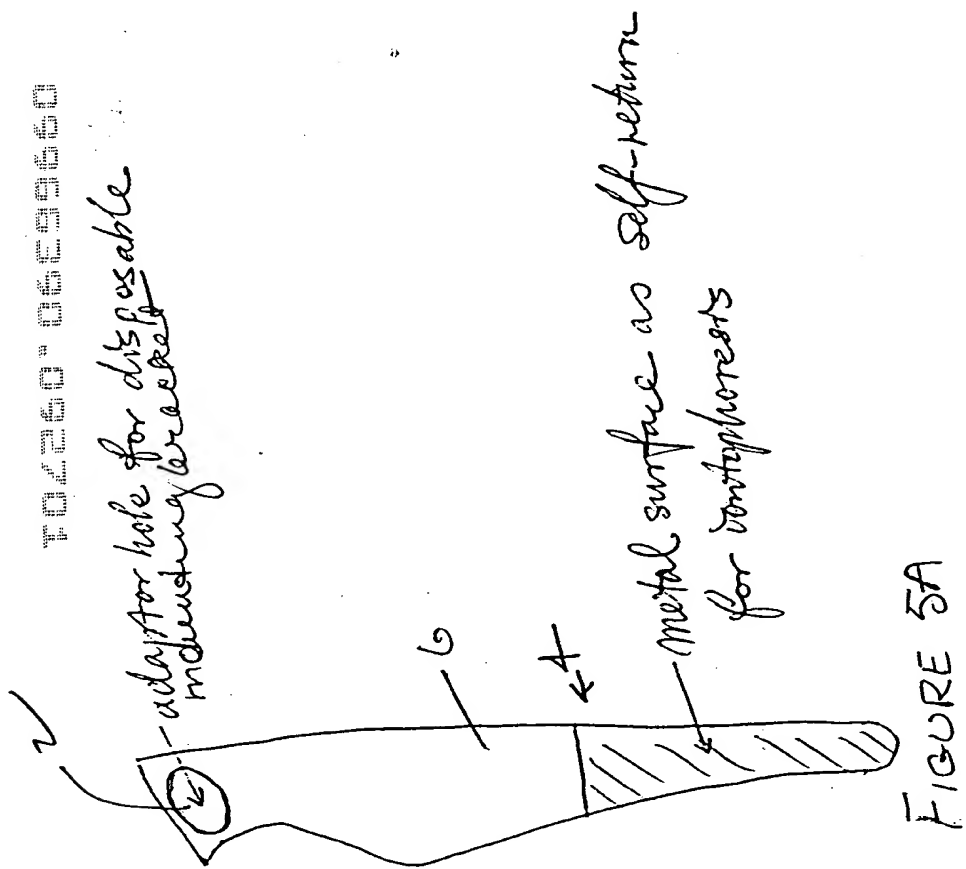 09965390.092701
2
adaptor hole for disposable
mounting bracket
6
4
metal surface as self-return
for iontophoresis
FIGURE 5A